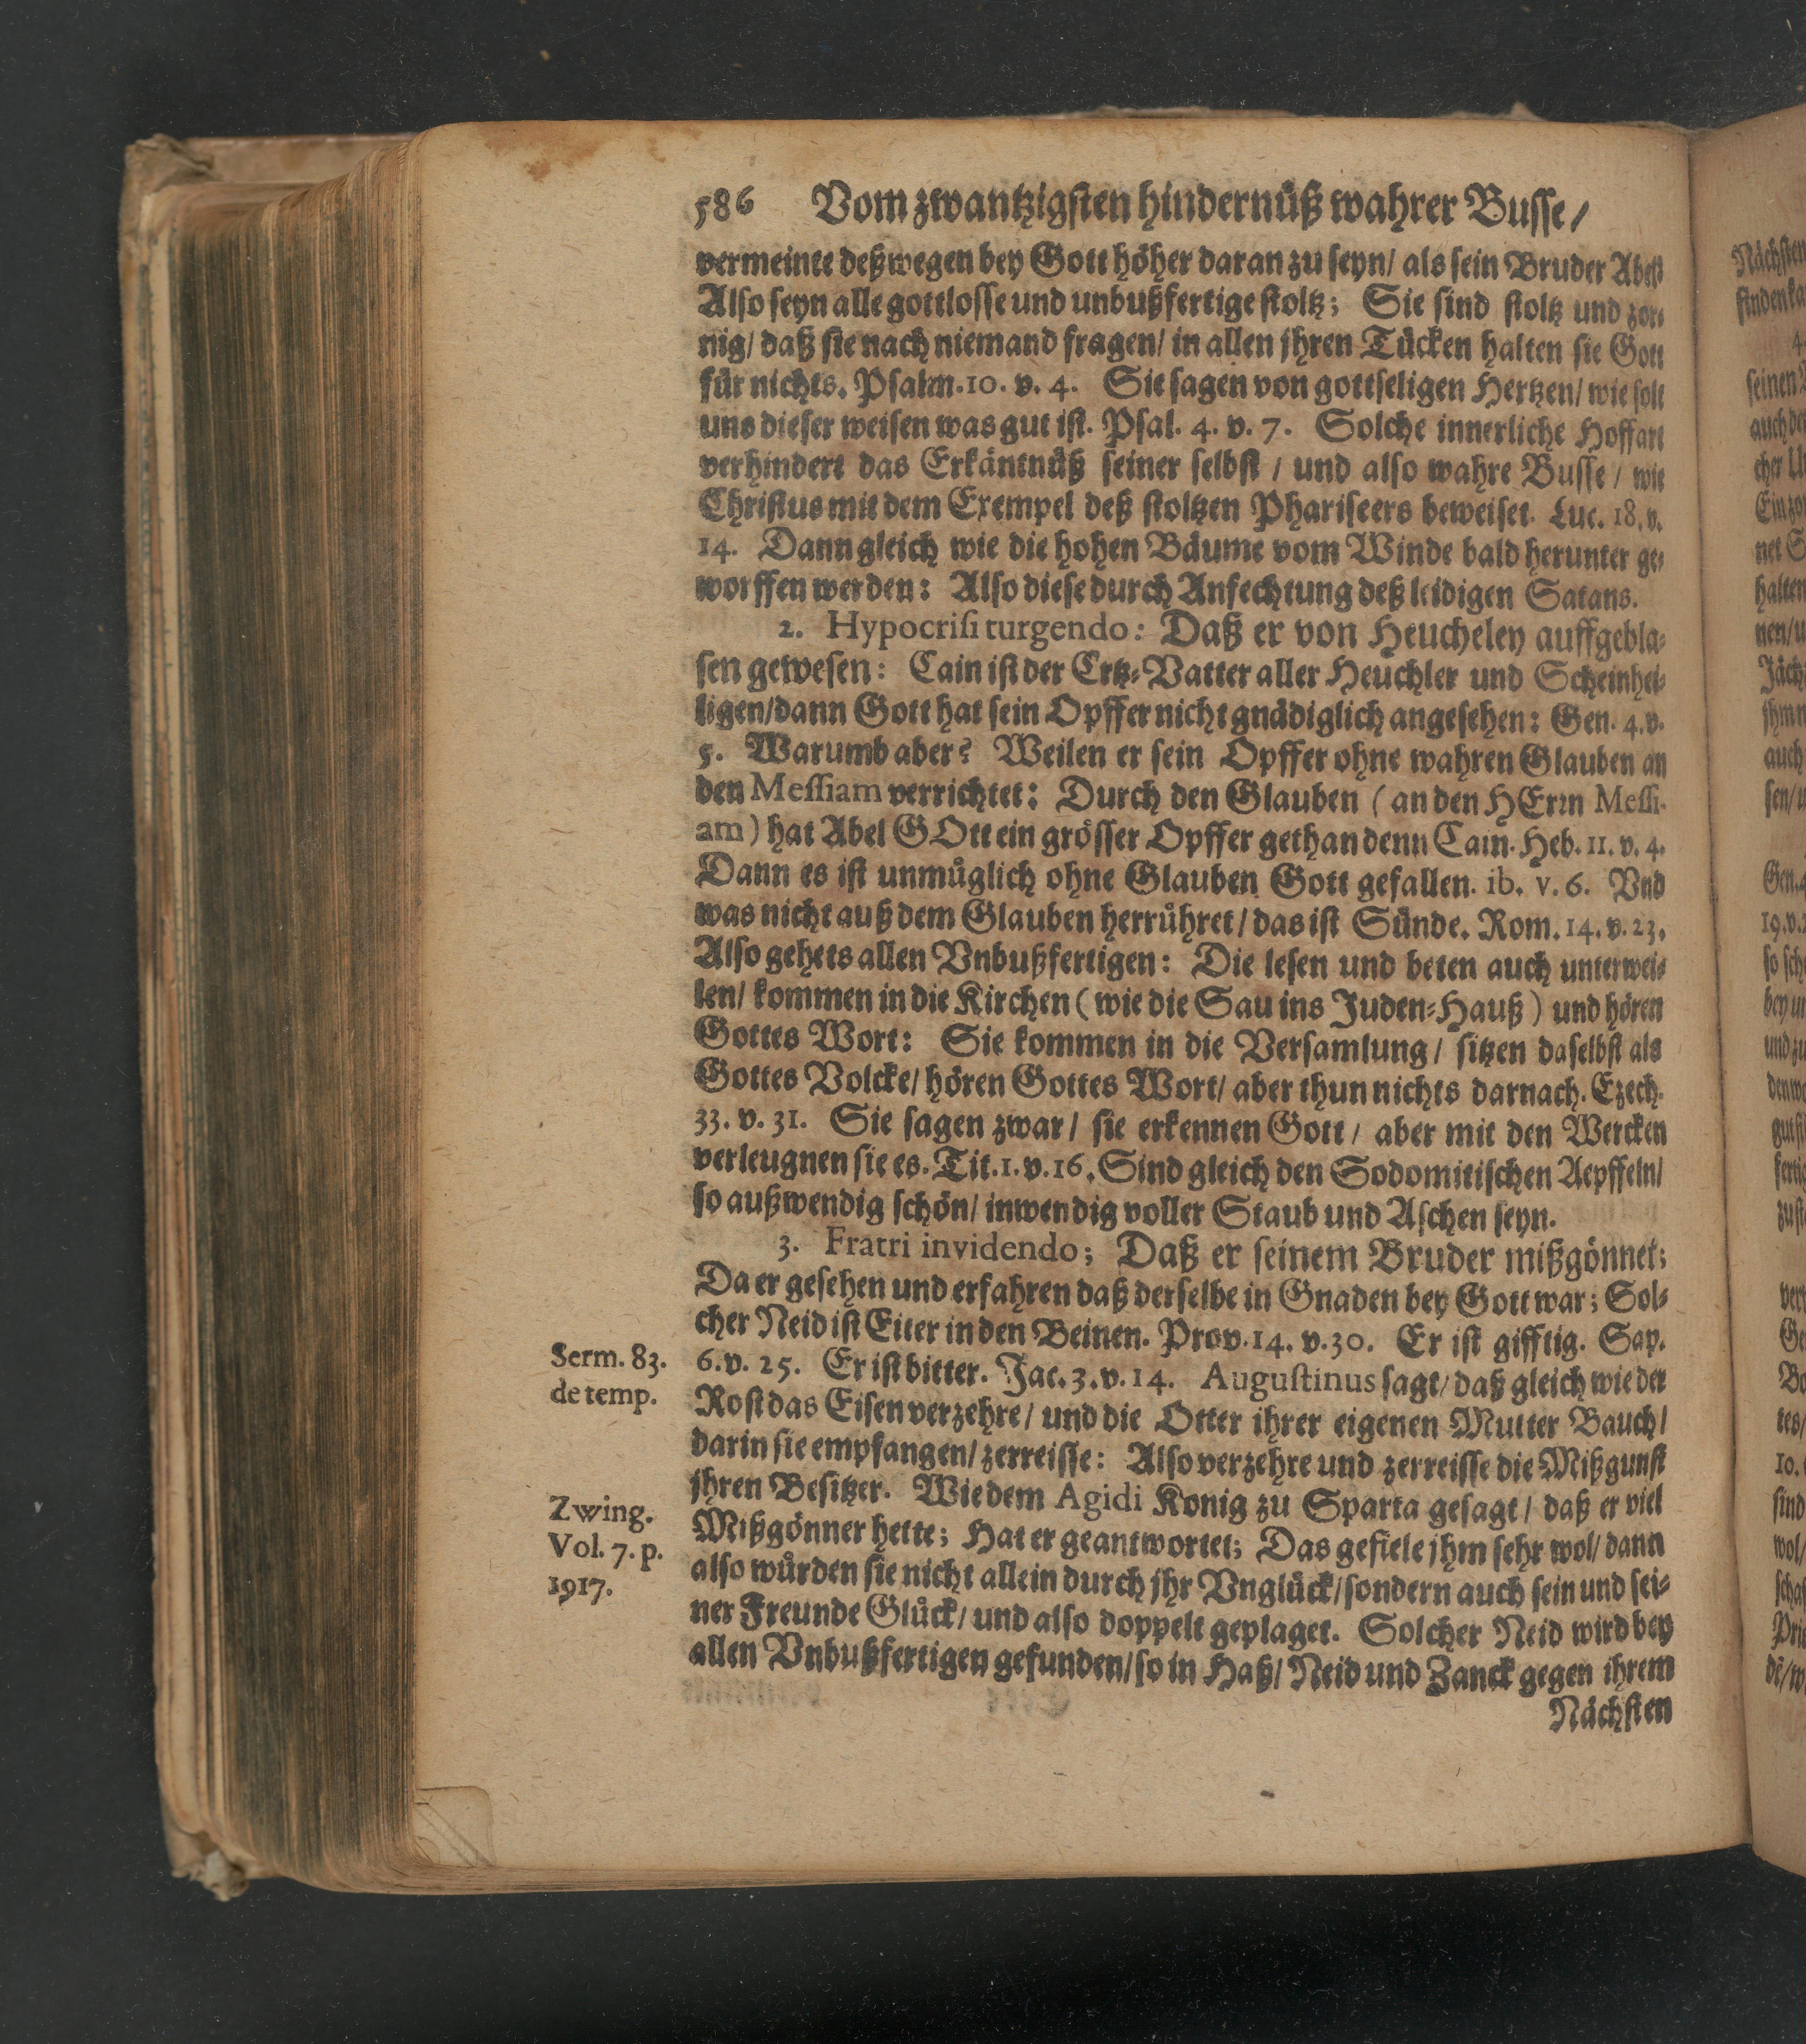 586 Vom zwantzigsten hindernüß wahrer Busse/
vermeinte deßwegen bey Gott höher daran zu seyn/ als sein Bruder Abel:
Also seyn alle gottlosse und unbußfertige stoltz; Sie sind stoltz und zor-
nig/ daß sie nach niemand fragen/ in allen jhren Tücken halten sie Gott
für nichts. Psalm. 10. v. 4. Sie sagen von gottseligen Hertzen/ wie solt
uns dieser weisen was gut ist. Psal. 4. v. 7. Solche innerliche Hoffart
verhindert das Erkäntnüß seiner selbst / und also wahre Busse / wie
Christus mit dem Exempel deß stoltzen Phariseers beweiset. Luc. 18. v.
14. Dann gleich wie die hohen Bäume vom Winde bald herunter ge-
worffen werden: Also diese durch Anfechtung deß leidigen Satans.
2. Hypocrisi turgendo: Daß er von Heucheley auffgebla-
sen gewesen: Cain ist der Ertz-Vatter aller Heuchler und Scheinhei-
ligen/ dann Gott hat sein Opffer nicht gnädiglich angesehen: Gen. 4. v.
5. Warumb aber? Weilen er sein Opffer ohne wahren Glauben an
den Messiam verrichtet: Durch den Glauben (an den HErrn Messi-
am) hat Abel GOtt ein grösser Opffer gethan denn Cain. Heb. 11. v. 4.
Dann es ist unmüglich ohne Glauben Gott gefallen. ib. v. 6. Vnd
was nicht auß dem Glauben herrühret/ das ist Sünde. Rom. 14. v. 23.
Also gehets allen Vnbußfertigen: Die lesen und beten auch unterwei-
len/ kommen in die Kirchen (wie die Sau ins Juden-Hauß) und hören
Gottes Wort: Sie kommen in die Versamlung/ sitzen daselbst als
Gottes Volcke/ hören Gottes Wort/ aber thun nichts darnach. Ezech.
33. v. 31. Sie sagen zwar/ sie erkennen Gott/ aber mit den Wercken
verleugnen sie es. Tit. 1. v. 16. Sind gleich den Sodomitischen Aepffeln/
so außwendig schön/ inwendig voller Staub und Aschen seyn.
3. Fratri invidendo; Daß er seinem Bruder mißgönnet;
Da er gesehen und erfahren daß derselbe in Gnaden bey Gott war; Sol-
cher Neid ist Eiter in den Beinen. Prov. 14. v. 30. Er ist gifftig. Sap.
6. v. 25. Er ist bitter. Jac. 3. v. 14. Augustinus sagt/ daß gleich wie der
Serm. 83.
de temp.
Rost das Eisen verzehre/ und die Otter ihrer eigenen Mutter Bauch/
darin sie empfangen/ zerreisse: Also verzehre und zerreisse die Mißgunst
jhren Besitzer. Wie dem Agidi Konig zu Sparta gesagt/ daß er viel
Zwing.
Vol. 7. p.
1917.
Mißgönner hette; Hat er geantwortet; Das gefiele jhm sehr wol/ dann
also würden sie nicht allein durch jhr Vnglück/ sondern auch sein und sei-
ner Freunde Glück/ und also doppelt geplaget. Solcher Neid wird bey
allen Vnbußfertigen gefunden/ so in Haß/ Neid und Zanck gegen ihrem
Nächsten